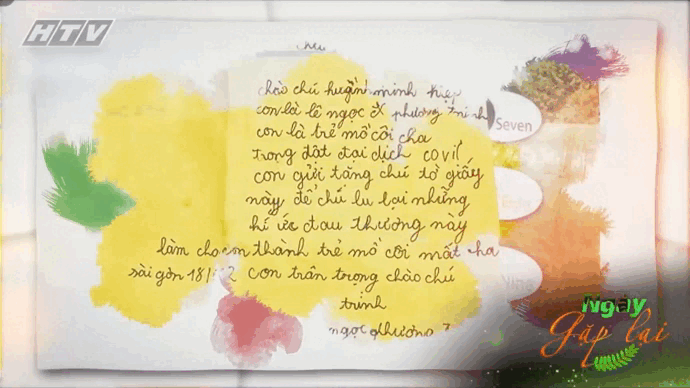 HTV
chào chú huỳnh minh hiệp
con là lê ngọc phương trinh
con là trẻ mồ côi cha
trong đợt đại dịch covi
con gửi tặng chú tờ giấy
này để chú lu lại những
kí ức đau thương này
làm cho con thành trẻ mồ côi mất cha
sài gòn 18/ con trân trọng chào chú
trinh
ngọc phương
Seven
Nine
Ngày
Gặp lại